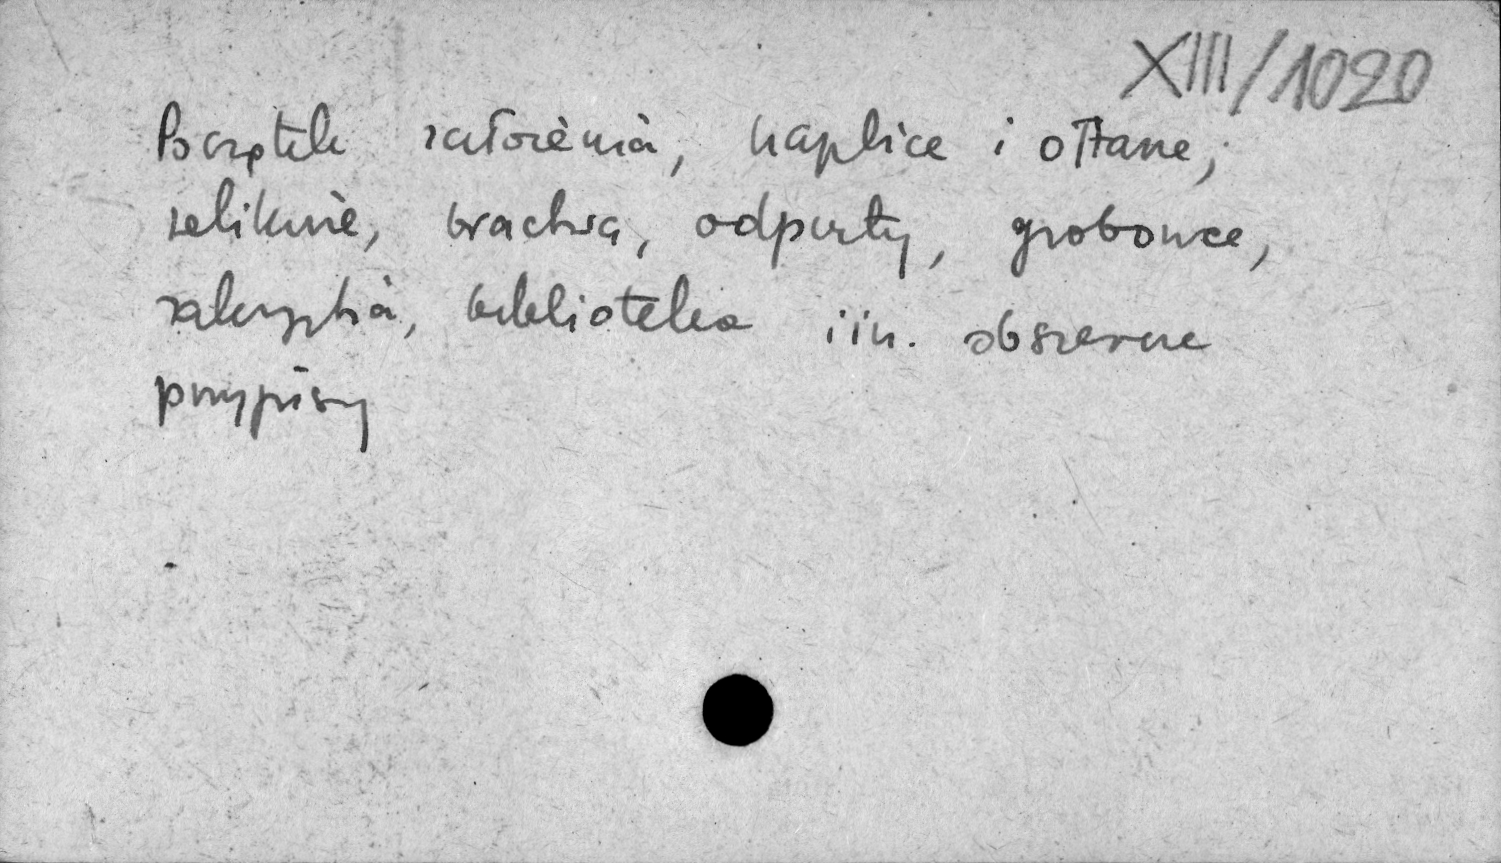 XIII/1020
Początek założenia, kaplice i ołtarze,
relikwie, bractwa, odpusty, grobowce,
zakrystia, biblioteka i in. obszerne
przypisy